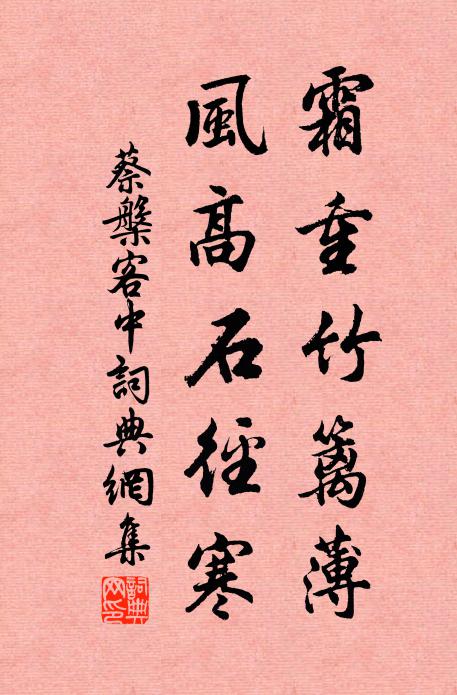 霜重竹籬薄
風高石徑寒
蔡槃客中詞典網集
詞典网印